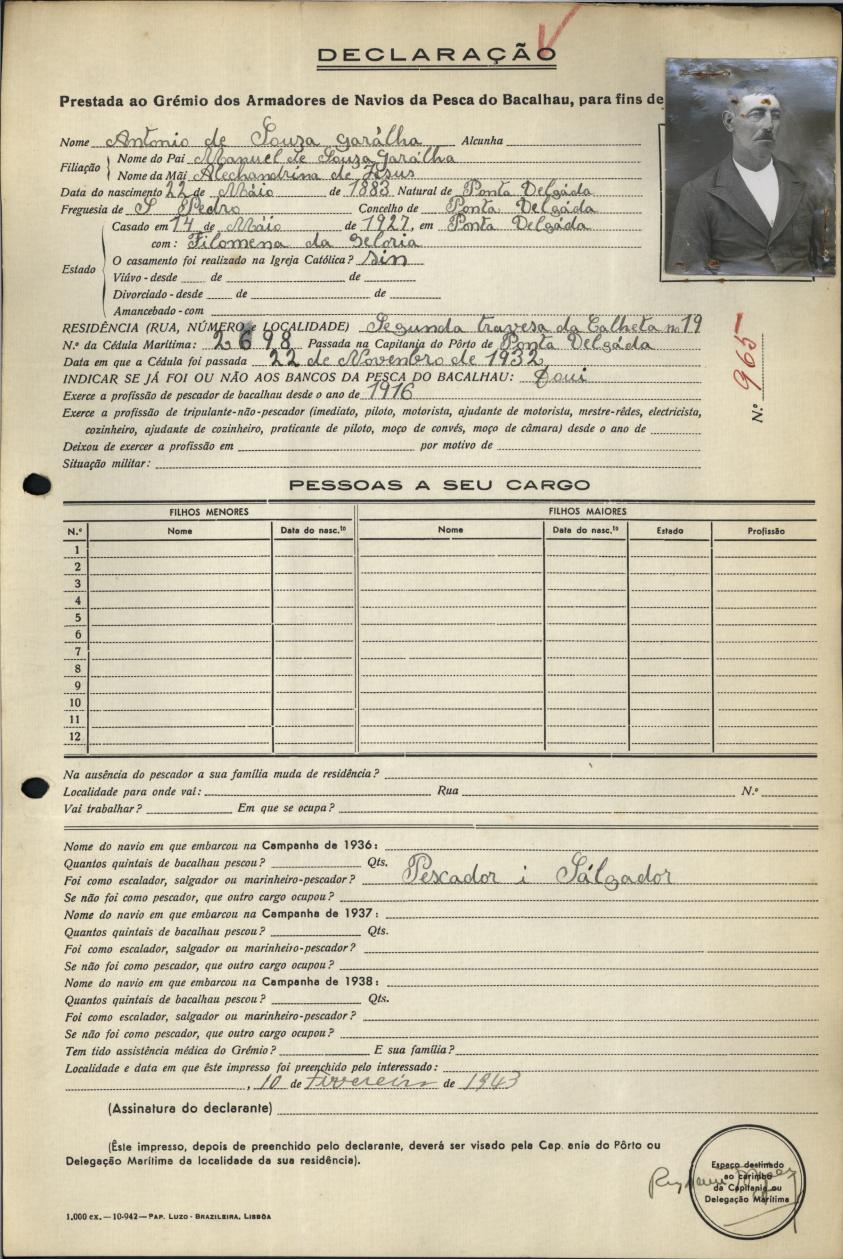 DECLARAÇÃO
Prestada ao Grémio dos Armadores de Navios da Pesca do Bacalhau, para fins de
Nome Antonio de Souza garálha Alcunha
Filiação Nome do Pai Manuel de Souza Garálha
Nome da Mãi Alechandrina de Jesus
Data do nascimento 22 de Máio de 1883 Natural de Ponta Delgáda
Freguesia de S Pedro Concelho de Ponta Delgáda
Casado em 14 de Máio de 1927, em Ponta Delgáda
com: Filomena da Gloria
Estado O casamento foi realizado na Igreja Católica? Sin
Viúvo - desde de de
Divorciado - desde de de
Amancebado - com
RESIDÊNCIA (RUA, NÚMERO e LOCALIDADE) Segunda travesa da Calheta n. 19
N.º da Cédula Marítima: 2698 Passada na Capitania do Pôrto de Ponta Delgáda
Data em que a Cédula foi passada 22 de Novenbro de 1932
INDICAR SE JÁ FOI OU NÃO AOS BANCOS DA PESCA DO BACALHAU:
Exerce a profissão de pescador de bacalhau desde o ano de 1916
Exerce a profissão de tripulante-não-pescador (imediato, piloto, motorista, ajudante de motorista, mestre-rêdes, electricista,
cozinheiro, ajudante de cozinheiro, praticante de piloto, moço de convés, moço de câmara) desde o ano de
Deixou de exercer a profissão em por motivo de
Situação militar:
N.º 965
PESSOAS A SEU CARGO
FILHOS MENORES FILHOS MAIORES
N.º Nome Data do nasc.to Nome Data do nasc.to Estado Profissão
1
2
3
4
5
6
7
8
9
10
11
12
Na ausência do pescador a sua família muda de residência?
Localidade para onde vai: Rua N.º
Vai trabalhar? Em que se ocupa?
Nome do navio em que embarcou na Campanha de 1936:
Quantos quintais de bacalhau pescou? Qts.
Foi como escalador, salgador ou marinheiro-pescador? Pescador i Sálgador
Se não foi como pescador, que outro cargo ocupou?
Nome do navio em que embarcou na Campanha de 1937:
Quantos quintais de bacalhau pescou? Qts.
Foi como escalador, salgador ou marinheiro-pescador?
Se não foi como pescador, que outro cargo ocupou?
Nome do navio em que embarcou na Campanha de 1938:
Quantos quintais de bacalhau pescou? Qts.
Foi como escalador, salgador ou marinheiro-pescador?
Se não foi como pescador, que outro cargo ocupou?
Tem tido assistência médica do Grémio? E sua família?
Localidade e data em que êste impresso foi preenchido pelo interessado:
, 10 de Fevereiro de 1943
(Assinatura do declarante)
(Êste impresso, depois de preenchido pelo declarante, deverá ser visado pela Cap. ania do Pôrto ou
Delegação Marítima da localidade da sua residência).
Espaço destinado
ao carimbo
da Capitania ou
Delegação Marítima
1.000 ex. — 10-942 — PAP. LUZO - BRAZILEIRA, LISBÔA